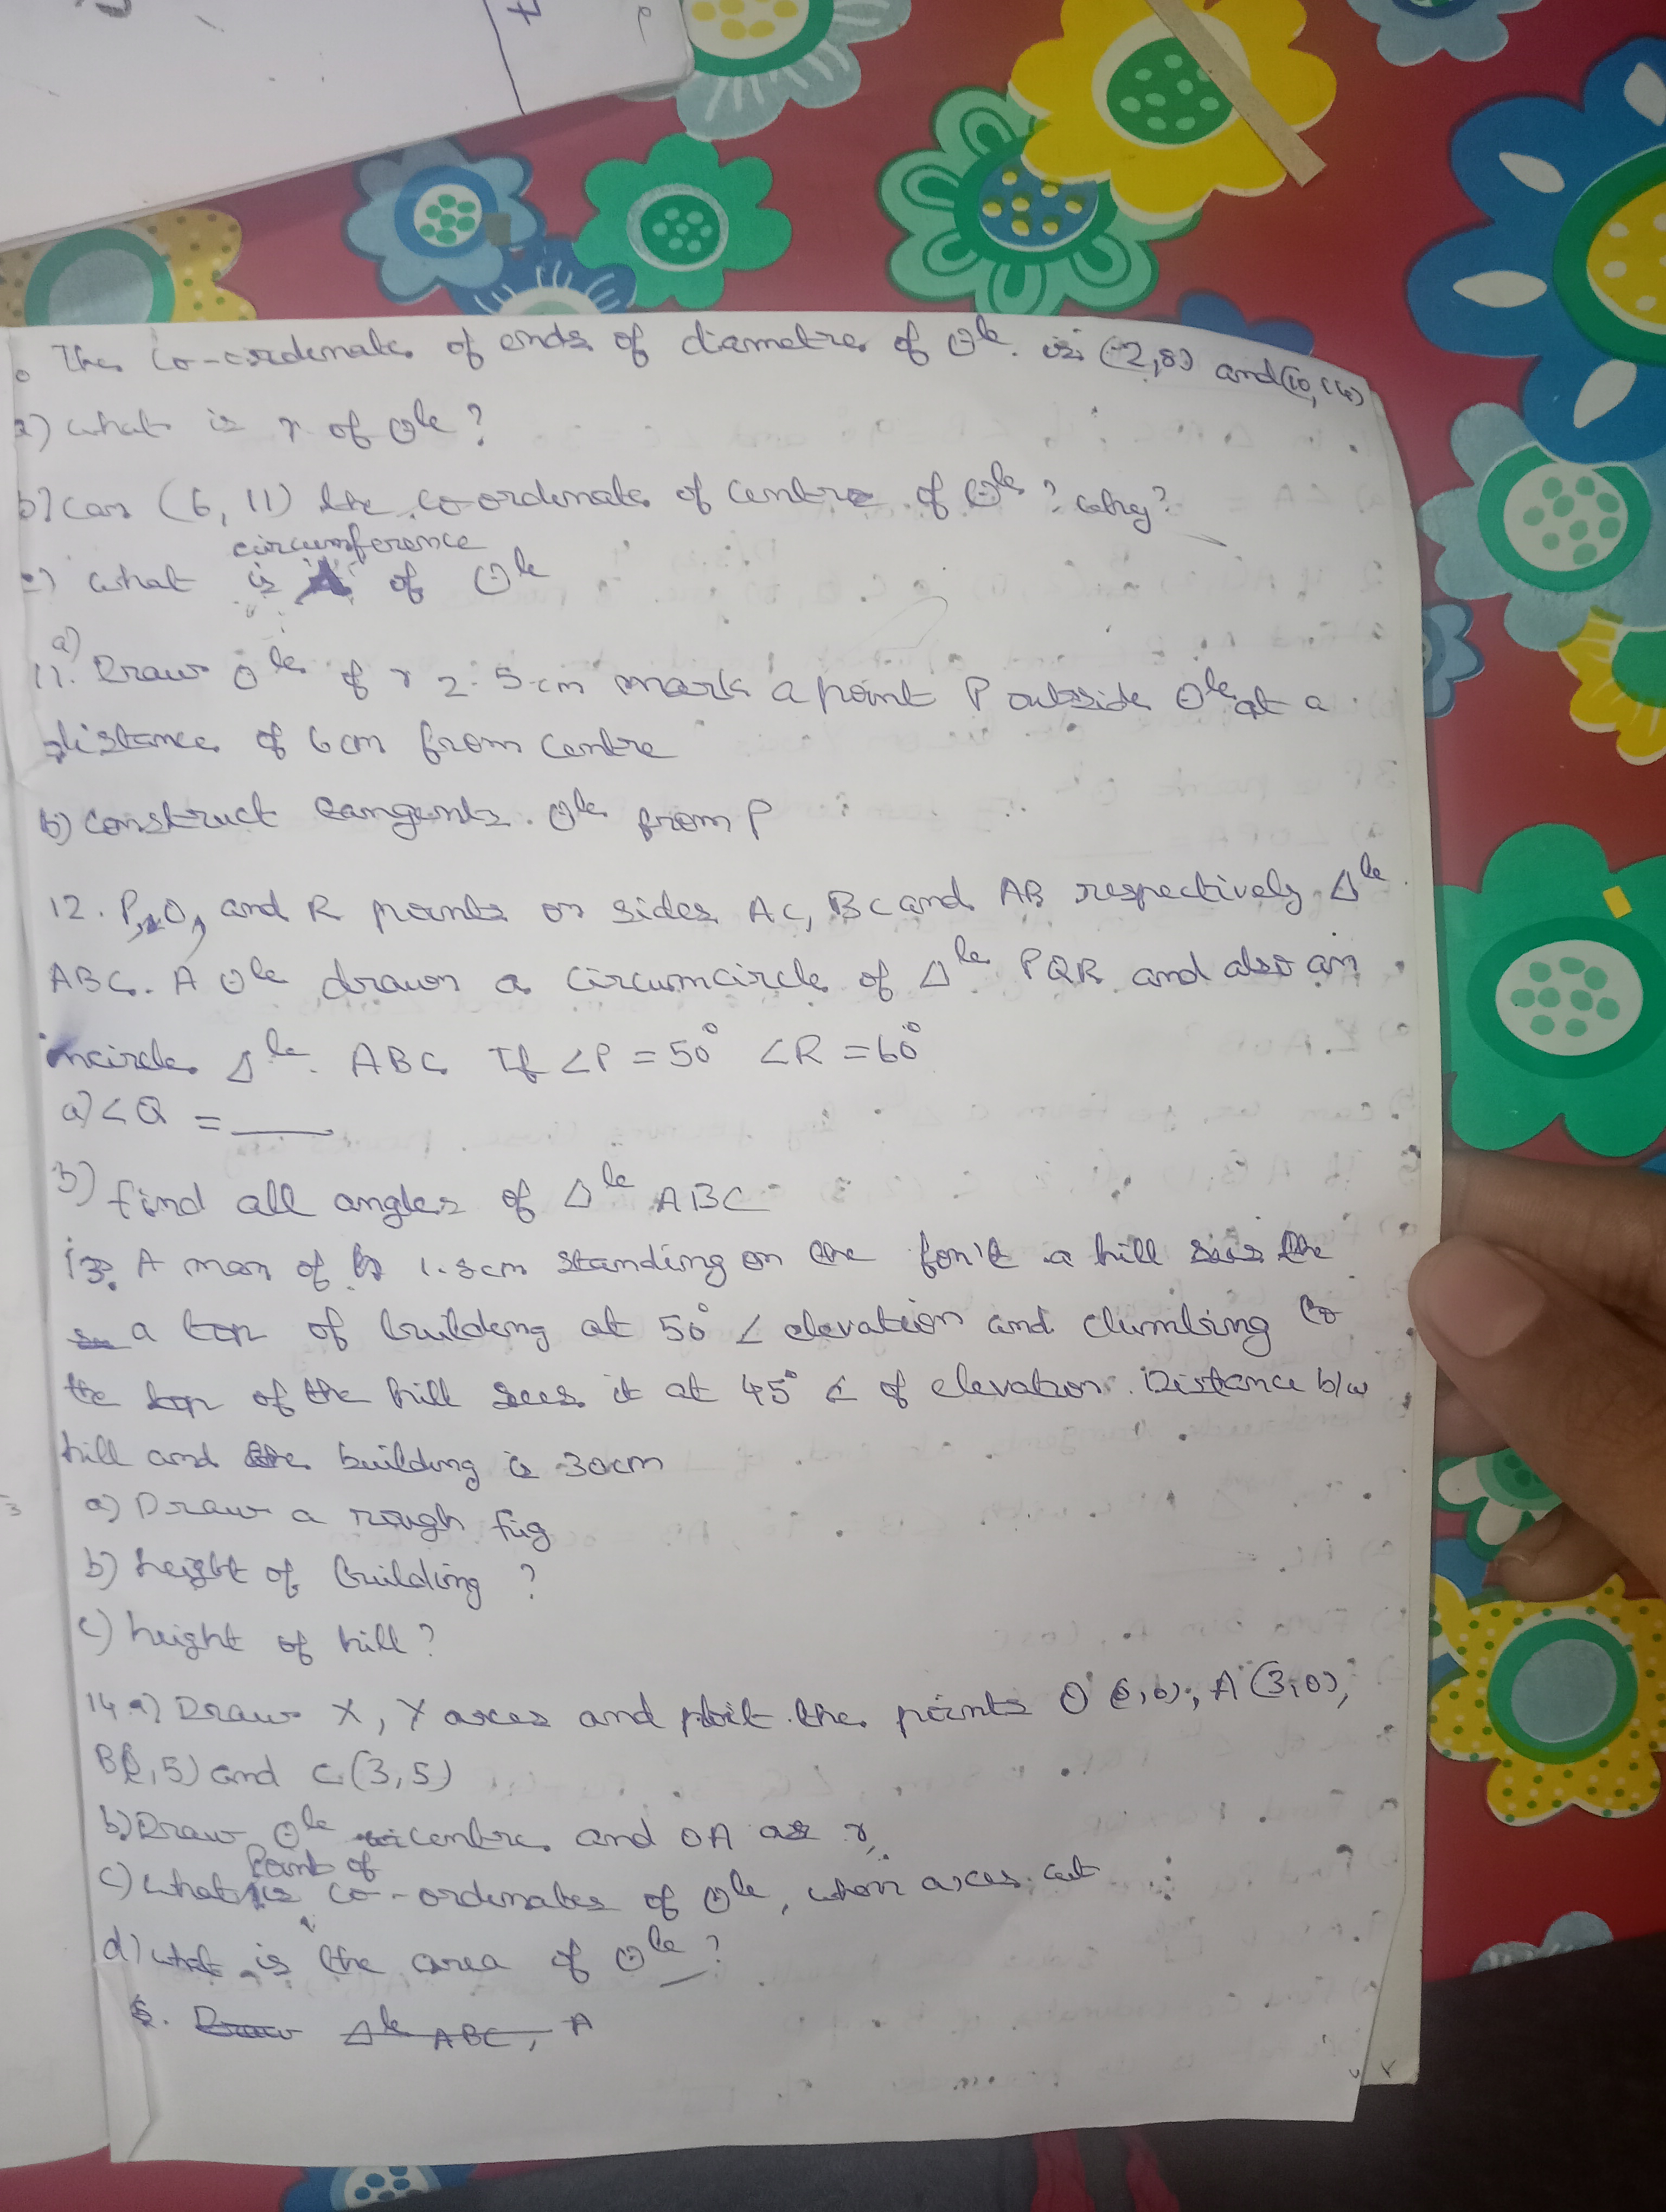 The co-ordinate of ends of diametre of ⊙le is (-2,8) and (10,14)
a) what is r of ⊙le ?
b) can (6, 11) be co-ordinate of centre of ⊙le ? why?
circumference
c) what is of ⊙le
11. a) Draw ⊙le of r 2.5 cm mark a point P outside ⊙le at a
distance of 6 cm from centre
b) construct tangents ⊙le from P
12. P, Q, and R points on sides AC, BC and AB respectively Δle
ABC. A ⊙le drawn a circumcircle of Δle PQR and also an
incircle Δle ABC If ∠P = 50° ∠R = 60°
a) ∠Q = ____
b) find all angles of Δle ABC
13. A man of 1.8cm standing on the fon't a hill sees the
a top of building at 50° ∠ elevation and climbing to
the top of the hill sees it at 45° ∠ of elevation. Distance b/w
hill and the building is 30cm
a) Draw a rough fig
b) height of building ?
c) height of hill ?
14. a) Draw X, Y axes and plot the points O (0,0), A (3,0),
B( ,5) and C (3,5)
b) Draw ⊙le centre and OA as r
Point of
c) what is co-ordinates of ⊙le, axes cut
d) what is the area of ⊙le ?
Draw Δle ABC, A